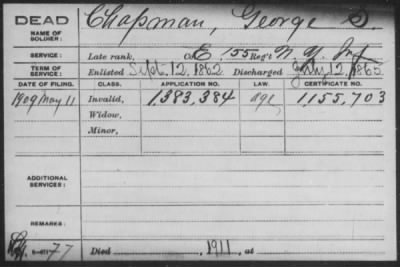 DEAD Chapman, George S.
NAME OF SOLDIER:
SERVICE: Late rank, Co. E, 155 Reg't N. Y. Inf
TERM OF SERVICE: Enlisted Sept. 12, 1862 Discharged July 12, 1865
DATE OF FILING. CLASS. APPLICATION NO. LAW. CERTIFICATE NO.
1909 May 11 Invalid, 1,383,384 age 1,155,703
Widow,
Minor,
ADDITIONAL SERVICES:
REMARKS:
Died 1911, at